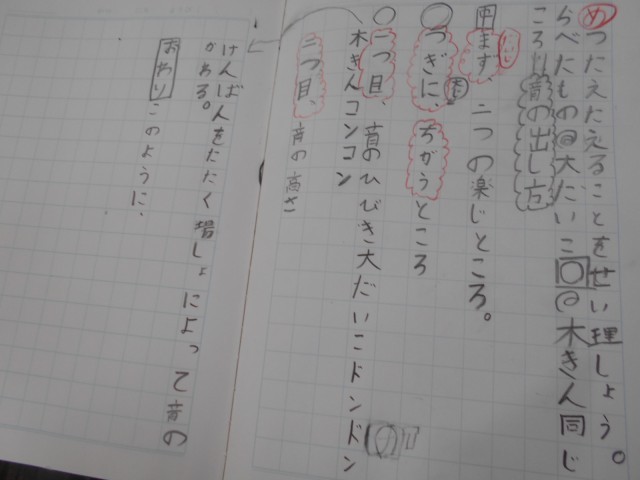 めつたえたえることをせい理しょう。
らべたもの@大だいこ@木きん同じ
ころ音の出し方
中まず、二つの楽じところ。
つぎに、ちがうところ
一つ目、音のひびき大だいこドンドン
木きんコンコン
二つ目、音の高さ
けんばんをたたく場しょによって音の
かわる。
おわりこのように、